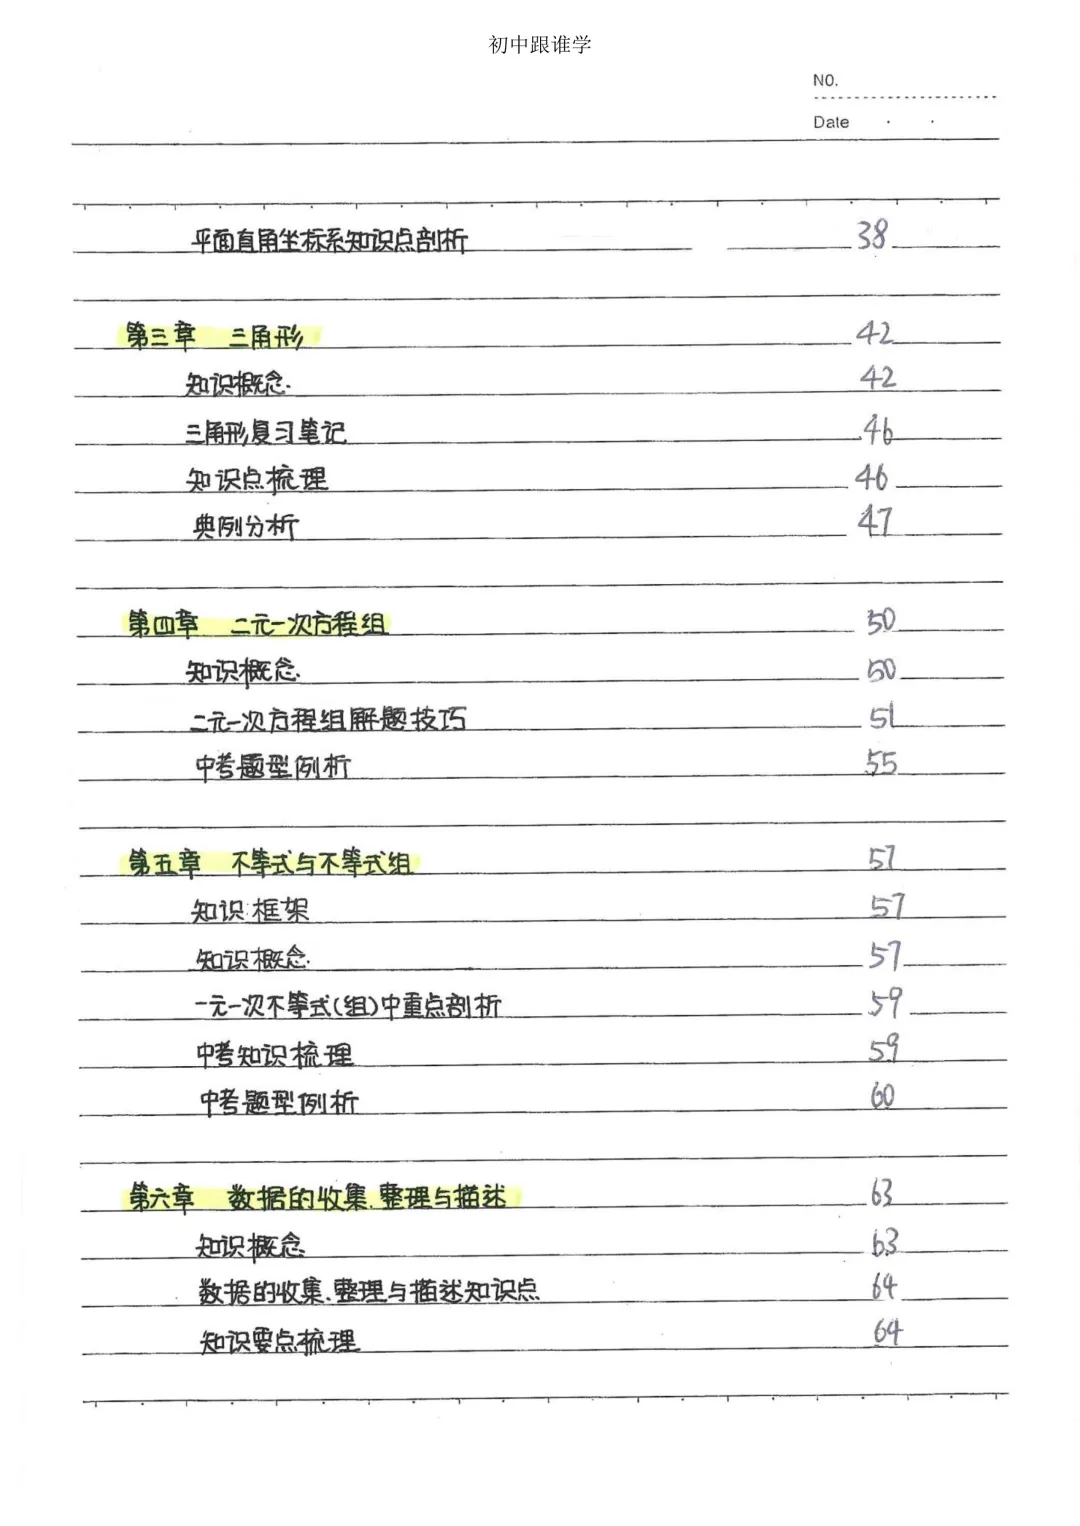 初中跟谁学
NO.
Date
平面直角坐标系知识点剖析 38
第三章 三角形 42
知识概念 42
三角形复习笔记 46
知识点梳理 46
典例分析 47
第四章 二元一次方程组 50
知识概念 50
二元一次方程组解题技巧 51
中考题型例析 55
第五章 不等式与不等式组 57
知识框架 57
知识概念 57
一元一次不等式(组)中重点剖析 59
中考知识梳理 59
中考题型例析 60
第六章 数据的收集、整理与描述 63
知识概念 63
数据的收集、整理与描述知识点 64
知识要点梳理 64